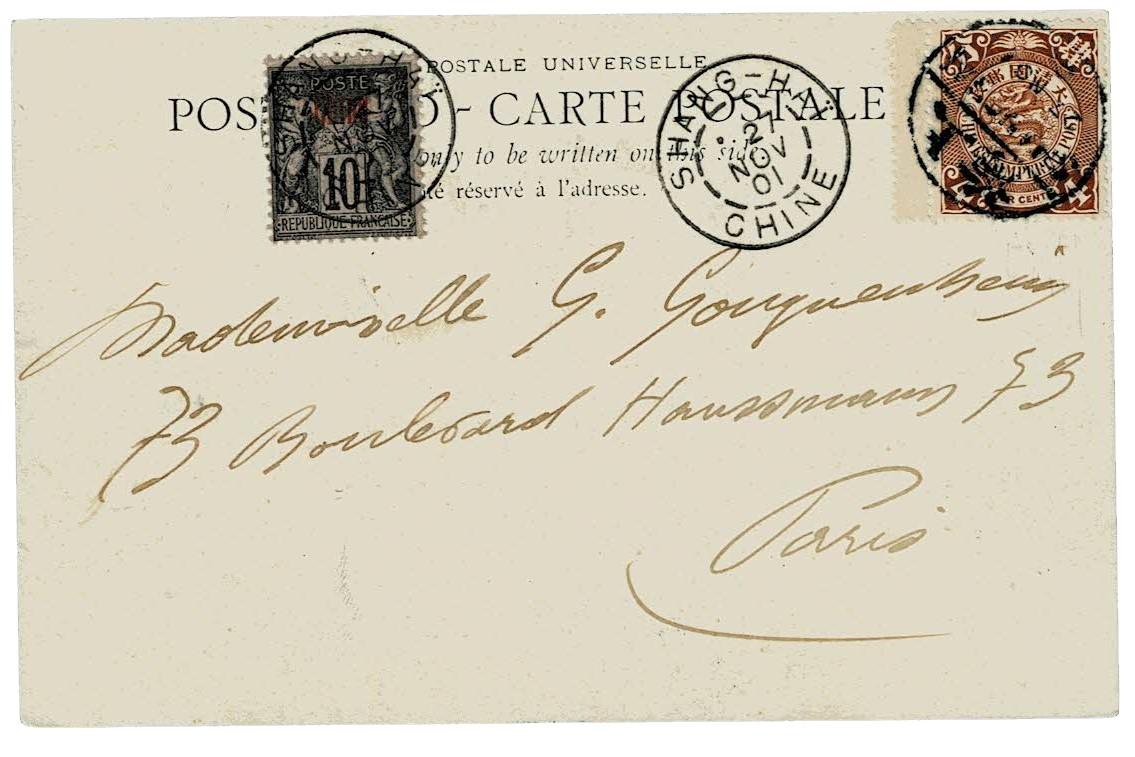 POSTALE UNIVERSELLE
POS D - CARTE POSTALE
only to be written on this side
té réservé à l'adresse.
POSTE
10
REPUBLIQUE FRANÇAISE
SHANG-HAÏ
SHANG-HAÏ
27
NOV
01
CHINE
CHINESE IMPERIAL POST
CENT
Mademoiselle G. Gouguenheim
73 Boulevard Haussmann 73
Paris